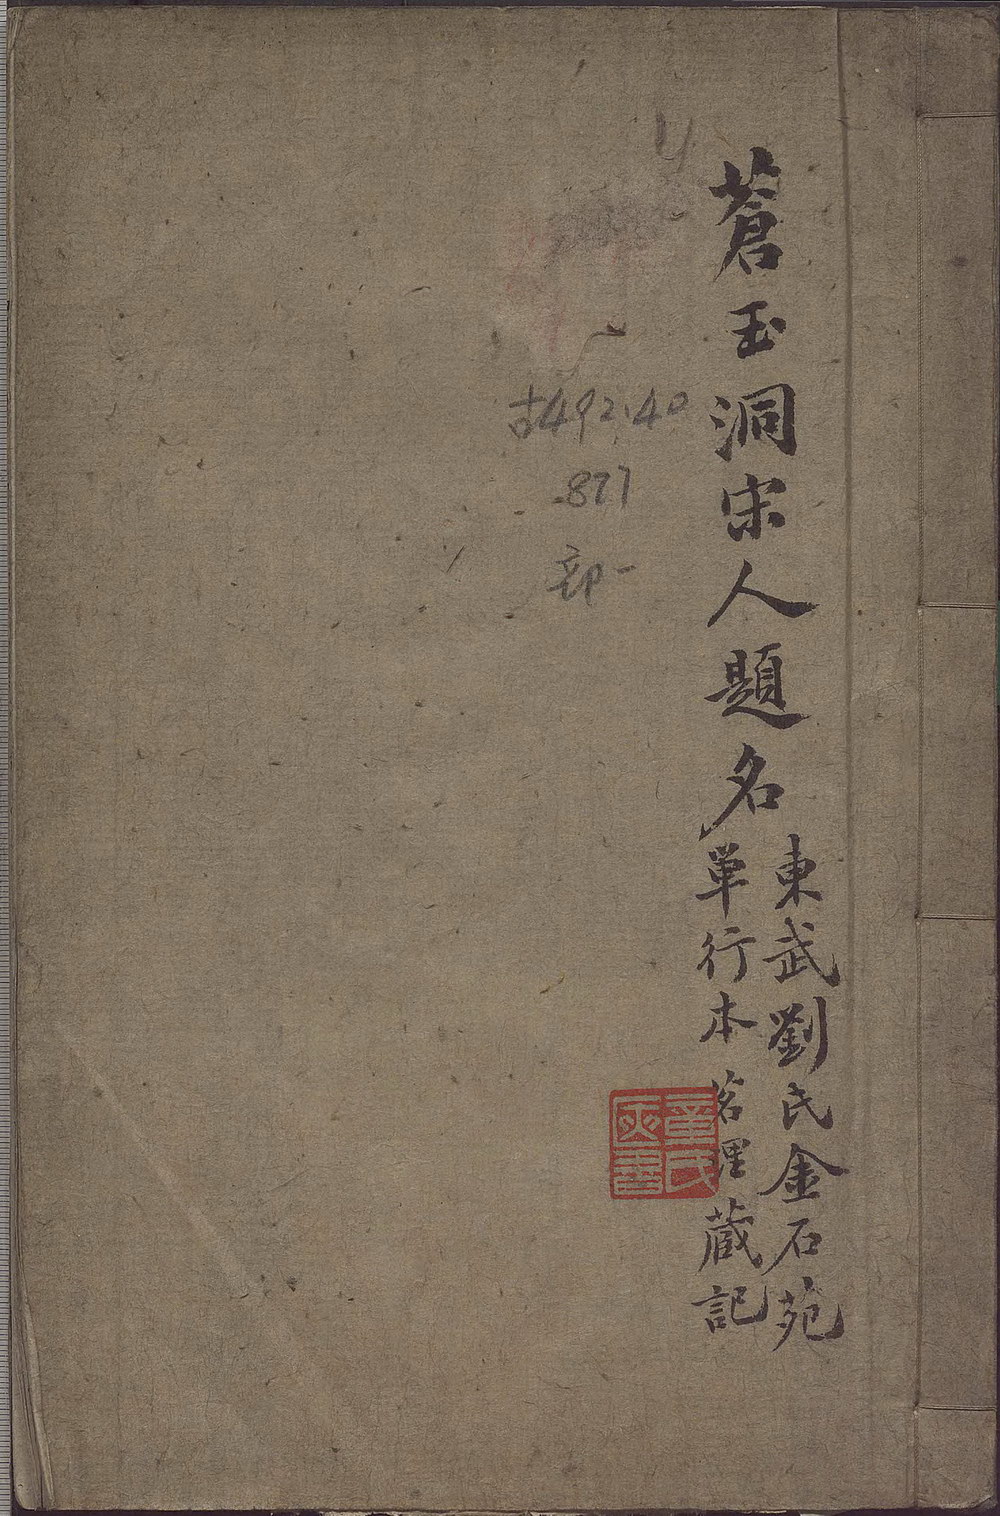 蒼玉洞宋人題名
東武劉氏金石苑
單行本 茗理藏記
童氏
古492.40
877
部一